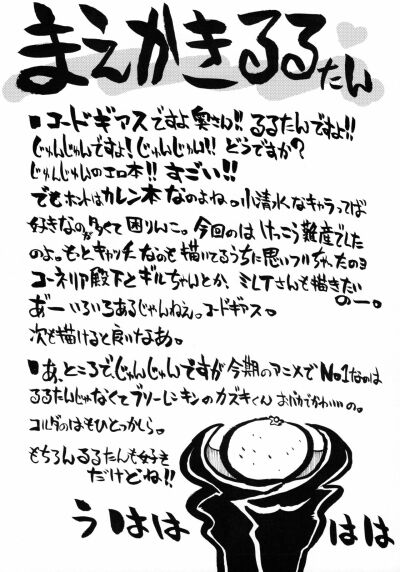 まえがきるるたん
■コードギアスですよ奥さん!! るるたんですよ!!
じゅんじゅんですよ! じゅんじゅん!! どうですか?
じゅんじゅんのエロ本!! すごい!!
でもホントはカレン本なのよね。小清水なキャラってば
好きなのが多くて困りんこ。今回のは、けっこう難産でした
のよ。もっとキャッチーなのも描いてるうちに思いついちゃったのヨ
コーネリア殿下とギルちゃんとか、ミレイさんも描きたい
のー。
あ゛ーいろいろあるじゃんねえ。コードギアス。
次も描けると良いなあ。
■あ、ところでじゅんじゅんですが今期のアニメでNo.1なのは
るるたんじゃなくてブリーレーキンのカズキくん おバカでかわいいの。
コルダのはもひとつかしら。
もちろんるるたんも好き
だけどね!!
うははは